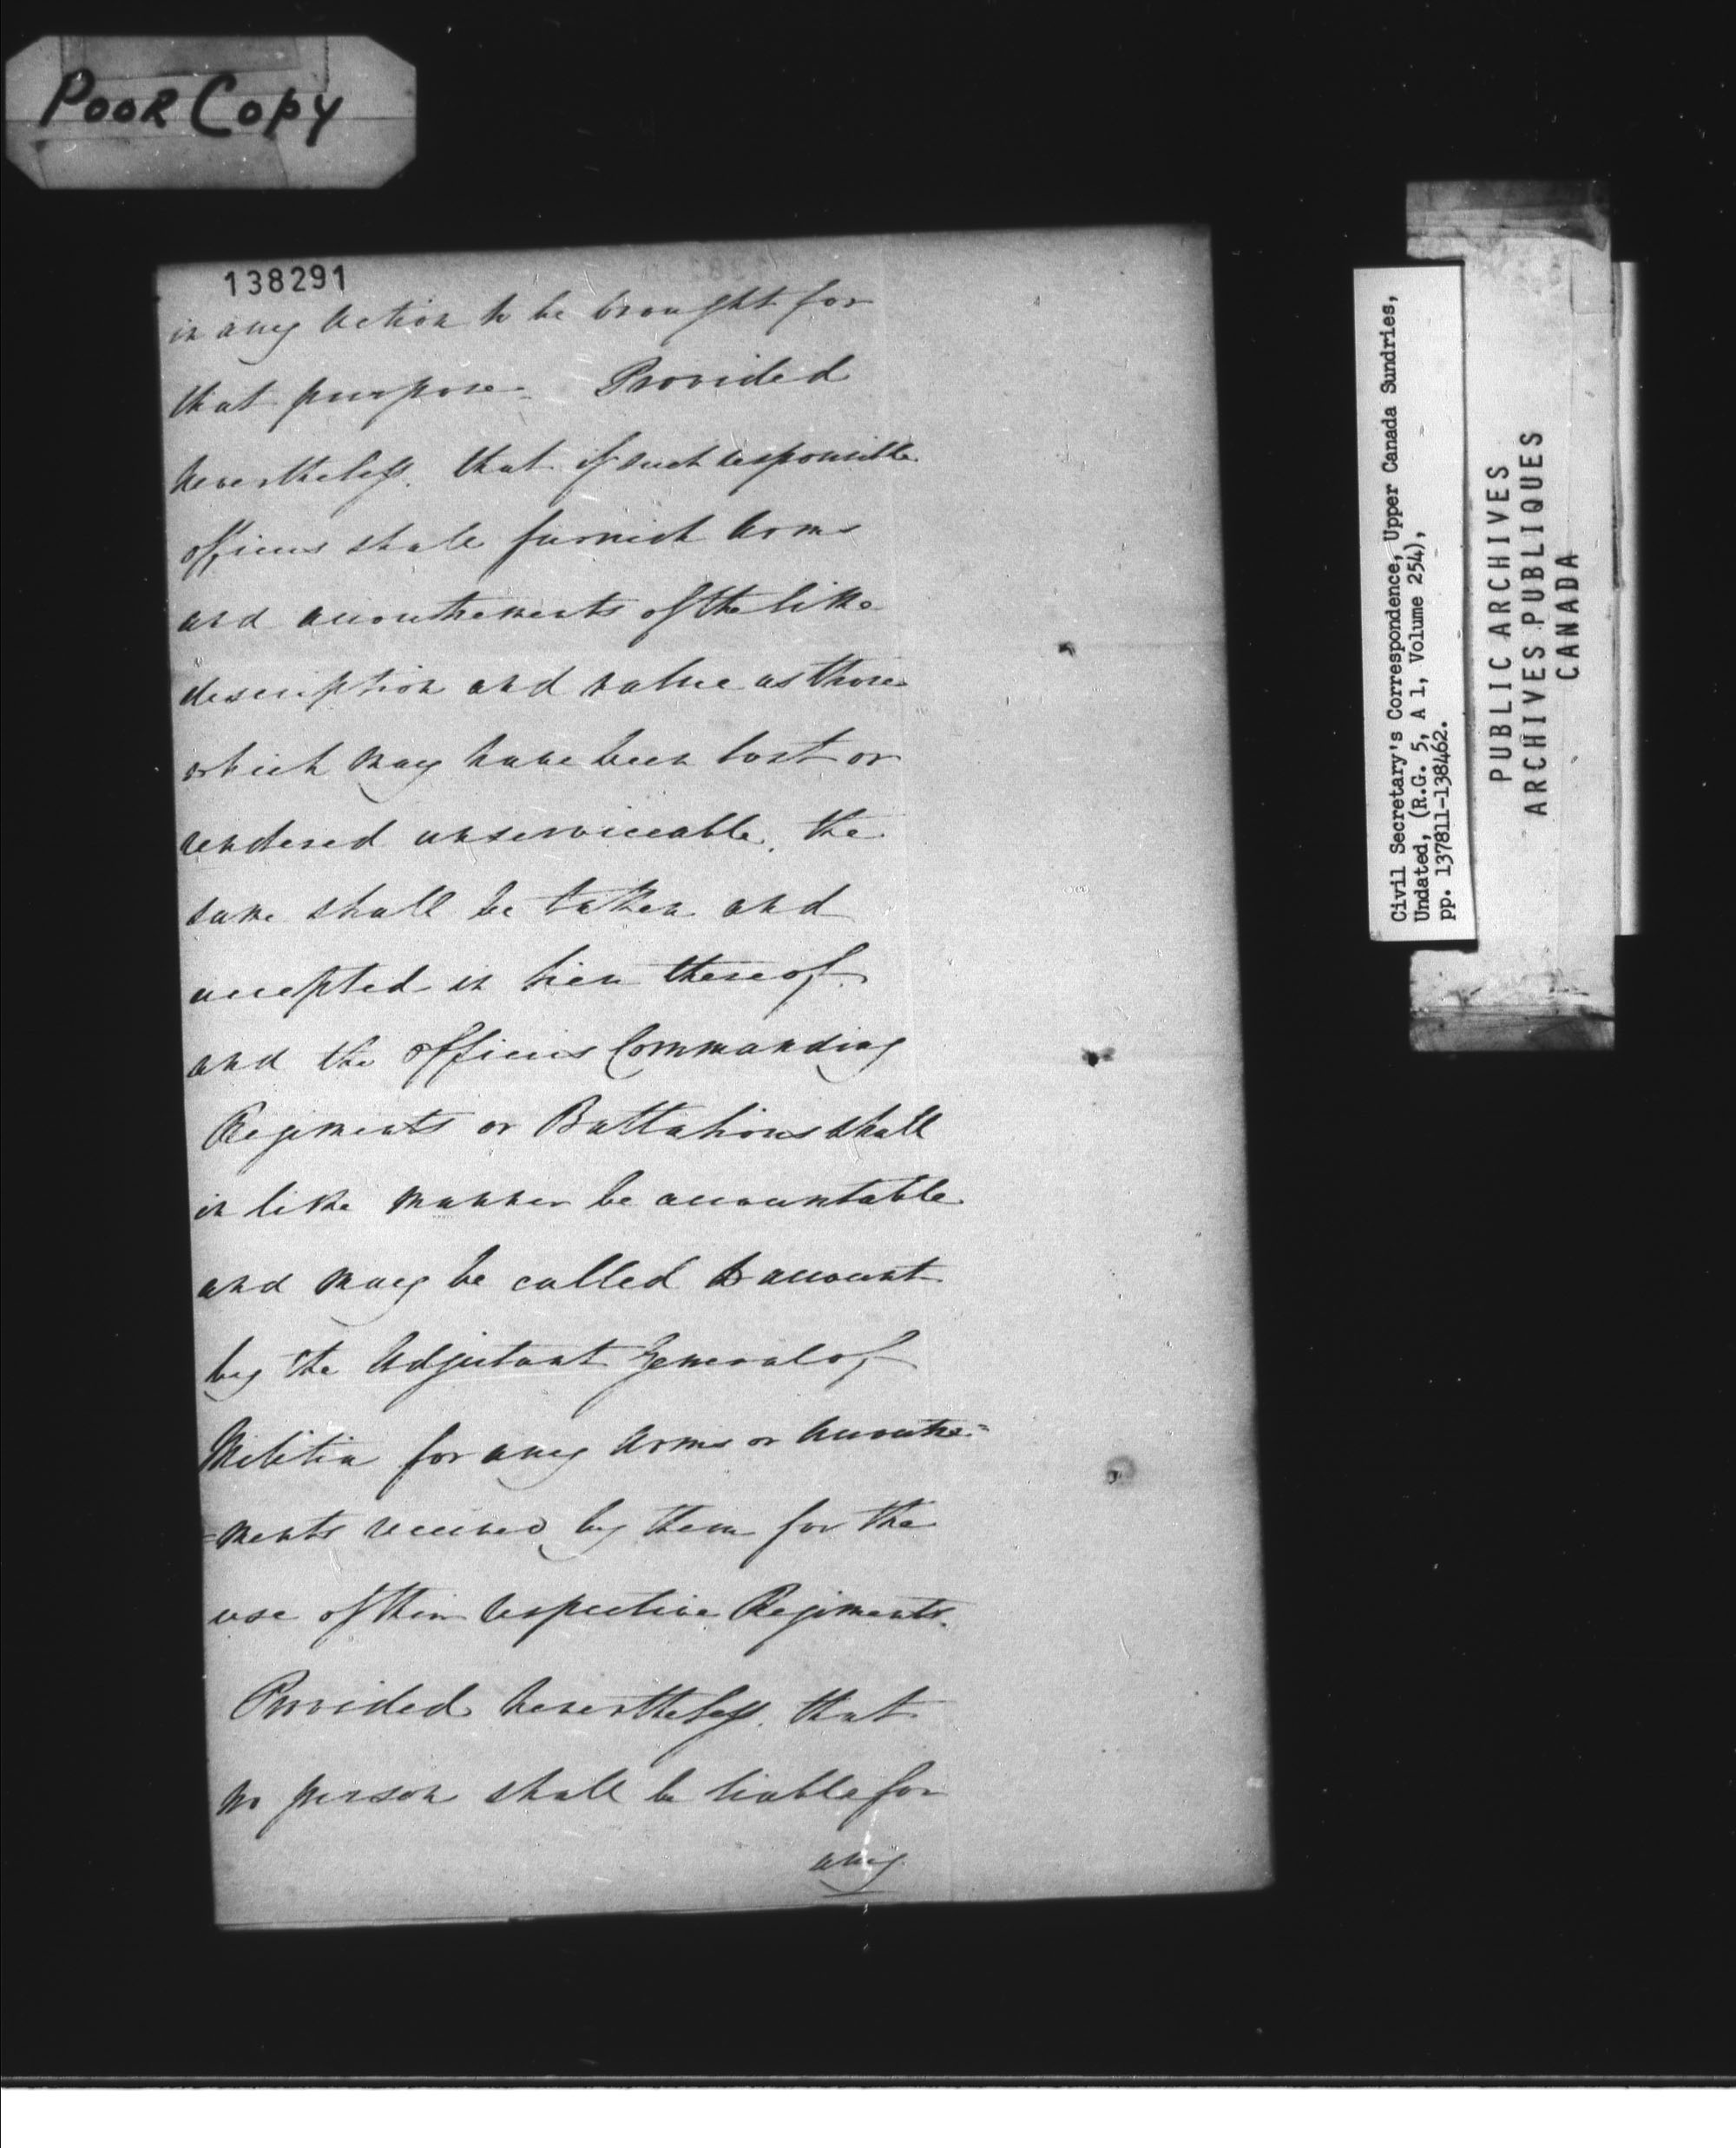 Poor Copy
138291
in any action to be brought for
that purpose. Provided
nevertheless that if such responsible
officers shall furnish Arms
and accoutrements of the like
description and value as those
which may have been lost or
rendered unserviceable, the
same shall be taken and
accepted in lieu thereof
and the Officers Commanding
Regiments or Battalions shall
in like manner be accountable
and may be called to account
by the Adjutant General of
Militia for any Arms or Accoutre=
=ments received by them for the
use of their respective Regiments.
Provided nevertheless, that
no person shall be liable for
any
Civil Secretary's Correspondence, Upper Canada Sundries,
Undated, (R.G. 5, A 1, Volume 254),
pp. 137811-138462.
PUBLIC ARCHIVES
ARCHIVES PUBLIQUES
CANADA